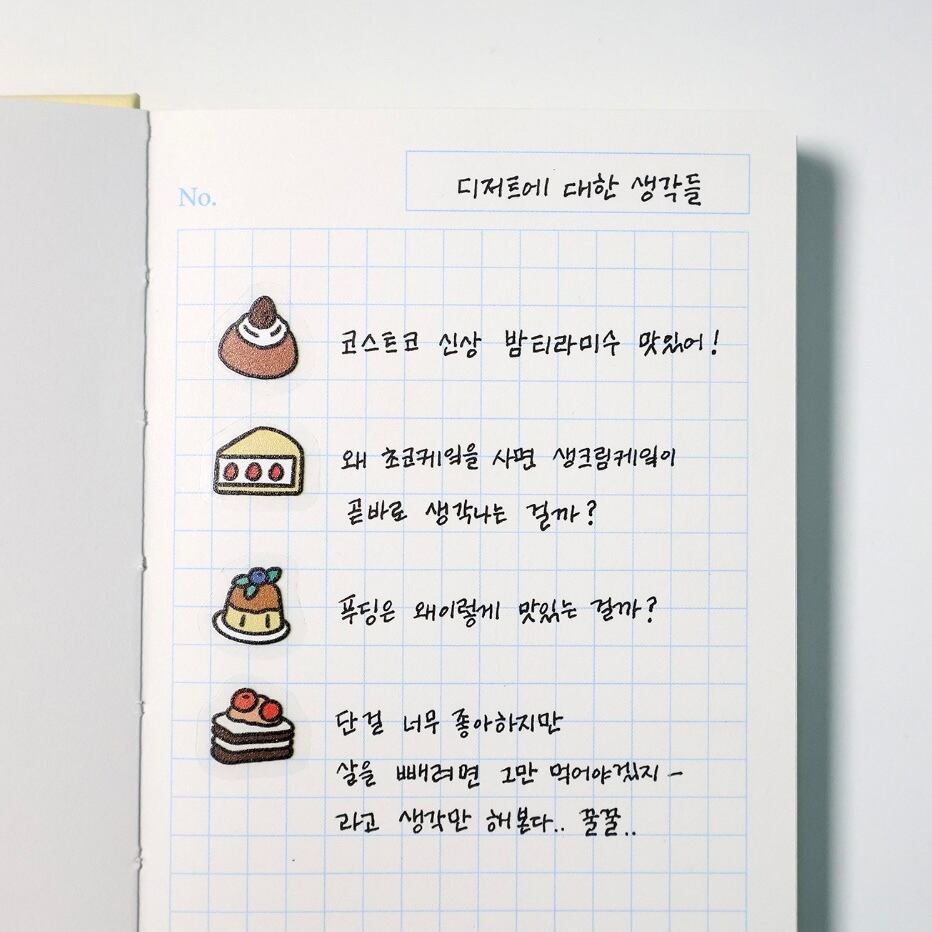 No.
디저트에 대한 생각들
코스트코 신상 밤티라미수 맛있어!
왜 초코케잌을 사면 생크림케잌이
곧바로 생각나는 걸까?
푸딩은 왜이렇게 맛있는 걸까?
단걸 너무 좋아하지만
살을 빼려면 그만 먹어야겠지-
라고 생각만 해본다.. 꿀꿀..